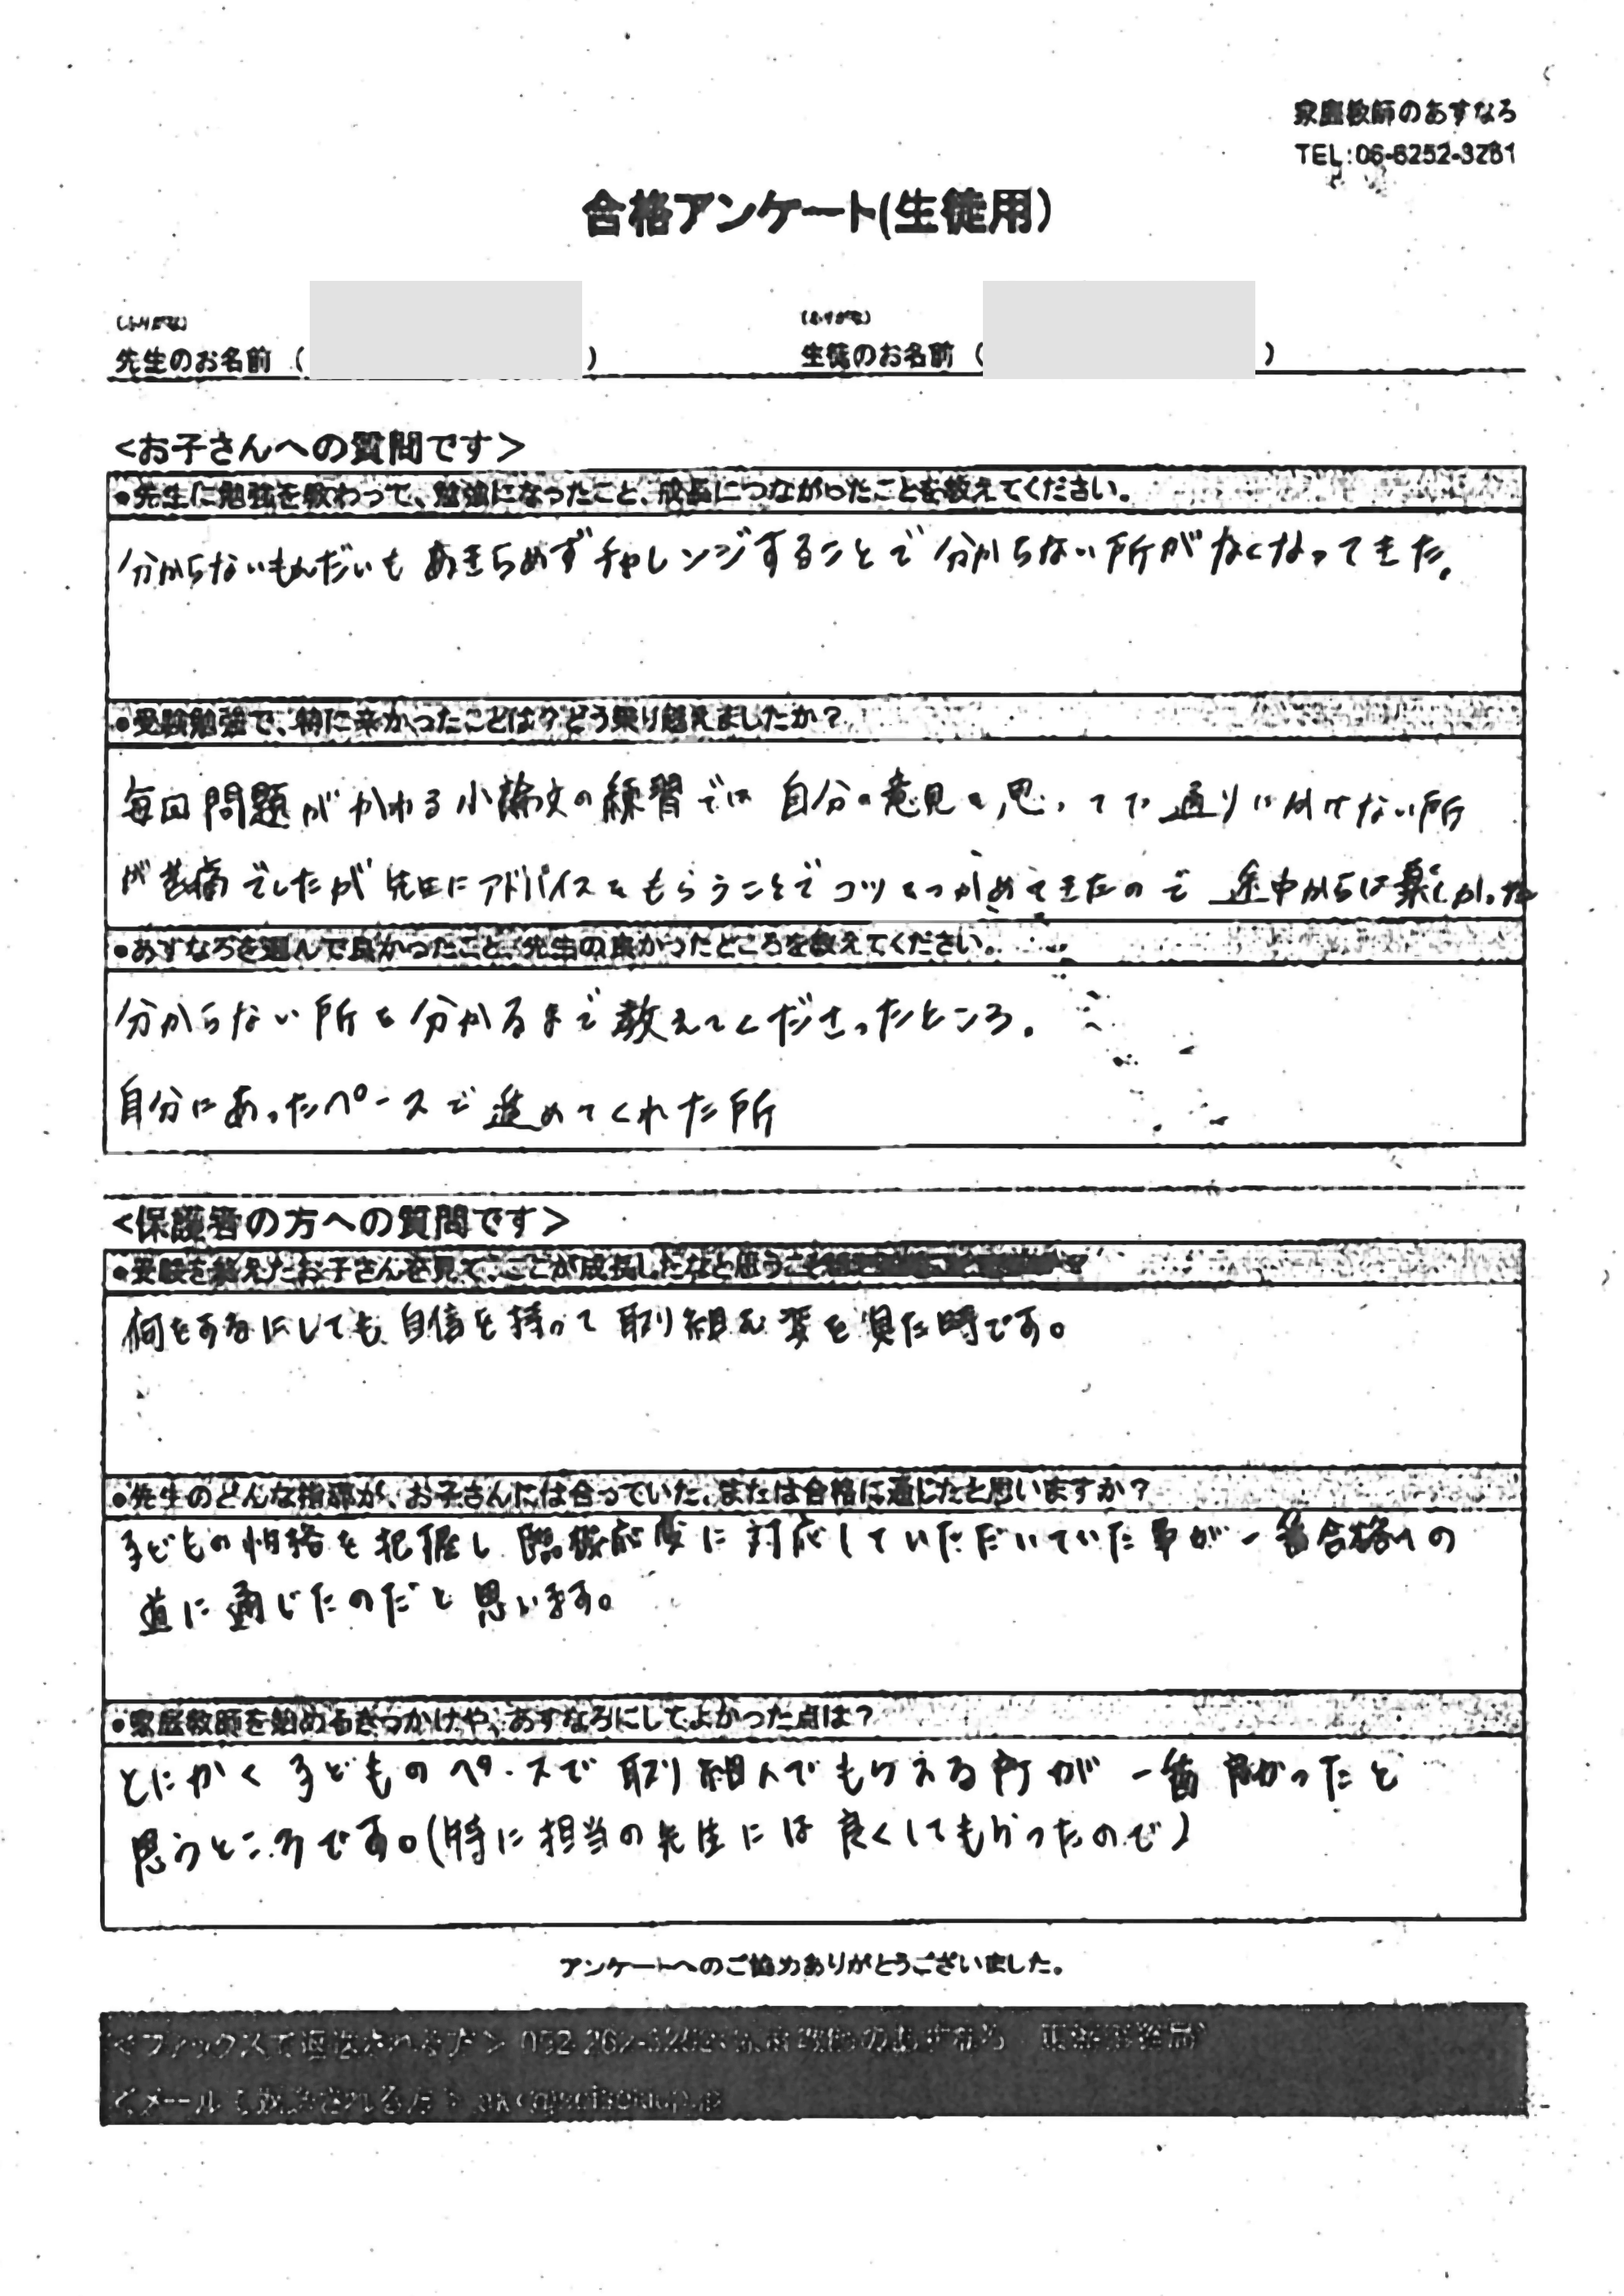 家庭教師のあすなろ
TEL:06-6252-3281
合格アンケート(生徒用)
(ふりがな)
先生のお名前 ( )
(ふりがな)
生徒のお名前 ( )
<お子さんへの質問です>
●先生に勉強を教わって、勉強になったこと、成長につながったことを教えてください。
分からないもんだいもあきらめずチャレンジすることで分からない所がなくなってきた。
●受験勉強で、特に辛かったことは?どう乗り越えましたか?
毎回問題がかわる小論文の練習では自分の意見を思ってた通りに書けない所
が苦痛でしたが先生にアドバイスをもらうことでコツをつかめてきたので途中からは楽しかった
●あすなろを選んで良かったこと、先生の良かったところを教えてください。
分からない所を分かるまで教えてくださったところ。
自分にあったペースで進めてくれた所
<保護者の方への質問です>
●受験を終えたお子さんを見て、ここが成長したなと思うこと
何をするにしても自信を持って取り組む姿を見た時です。
●先生のどんな指導が、お子さんには合っていた、または合格に通じたと思いますか?
子どもの性格を把握し臨機応変に対応していただいていた事が一番合格への
道に通じたのだと思います。
●家庭教師を始めるきっかけや、あすなろにしてよかった点は?
とにかく子どものペースで取り組んでもらえる所が一番良かったと
思うところです。(特に担当の先生には良くしてもらったので)
アンケートへのご協力ありがとうございました。
<ファックスで返送される方>